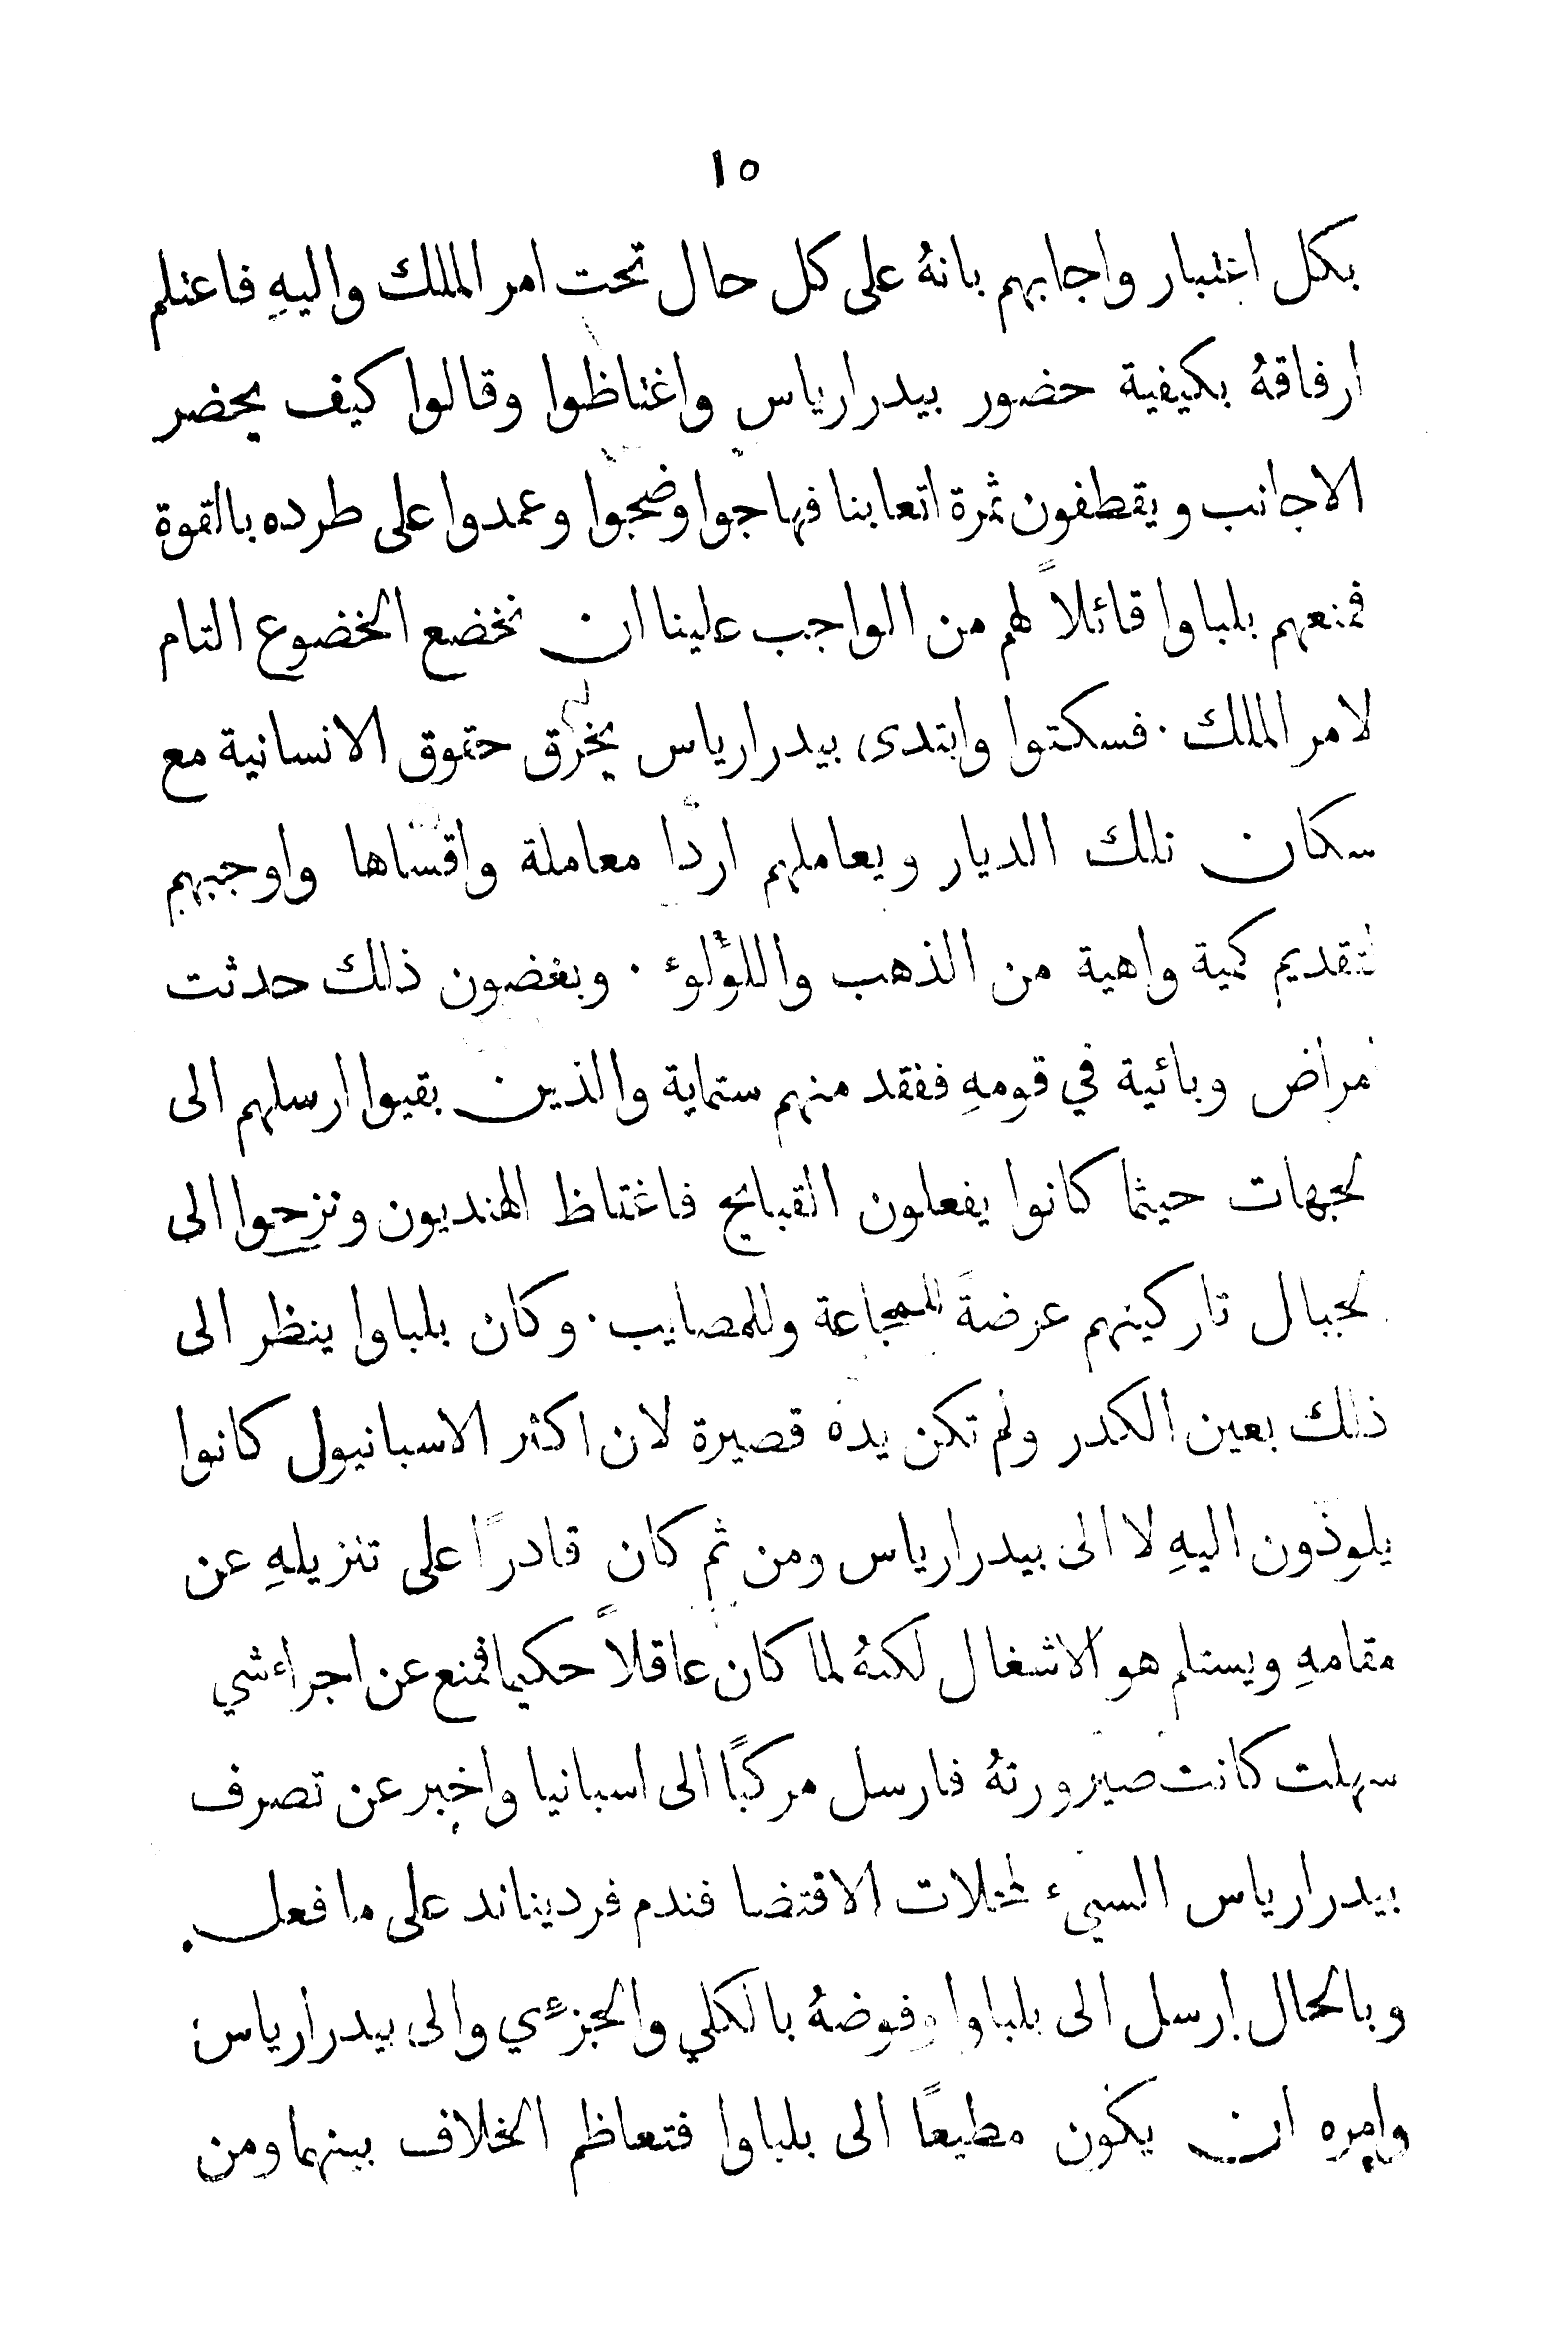 ١٥
بكل اعتبار واجابهم بانهُ على كل حال تحت امر الملك واليهِ فاعتلم
ارفاقهُ بكيفية حضور بيدرارياس واغتاظوا وقالوا كيف يحضر
الاجانب ويقطفون ثمرة اتعابنا فهاجوا وضجوا وعمدوا على طرده بالقوة
فمنعهم بلباوا قائلاً لهم من الواجب علينا ان نخضع الخضوع التام
لامر الملك . فسكتوا وابتدى بيدرارياس يخرق حقوق الانسانية مع
سكان تلك الديار ويعاملهم اردا معاملة واقساها واوجبهم
لتقديم كمية واهية من الذهب واللؤلوء . وبغضون ذلك حدثت
مراض وبائية في قومهِ ففقد منهم ستماية والذين بقيوا ارسلهم الى
لجهات حيثما كانوا يفعلون القبايح فاغتاظ الهنديون ونزحوا الى
لجبال تاركينهم عرضةً للمجاعة وللمصايب . وكان بلباوا ينظر الى
ذلك بعين الكدر ولم تكن يده قصيرة لان اكثر الاسبانيول كانوا
يلوذون اليهِ لا الى بيدرارياس ومن ثم كان قادرًا على تنزيلهِ عن
مقامهِ ويستلم هو الاشغال لكنهُ لما كان عاقلاً حكيما فمنع عن اجراء شي
سهلت كانت صيرورتهُ فارسل مركبًا الى اسبانيا واخبر عن تصرف
بيدرارياس السيء لمحلات الاقتضا فندم فرديناند على ما فعل .
وبالحال ارسل الى بلباوا وفوضهُ بالكلي والجزءي والى بيدرارياس
وامره ان يكون مطيعًا الى بلباوا فتعاظم الخلاف بينهما ومن